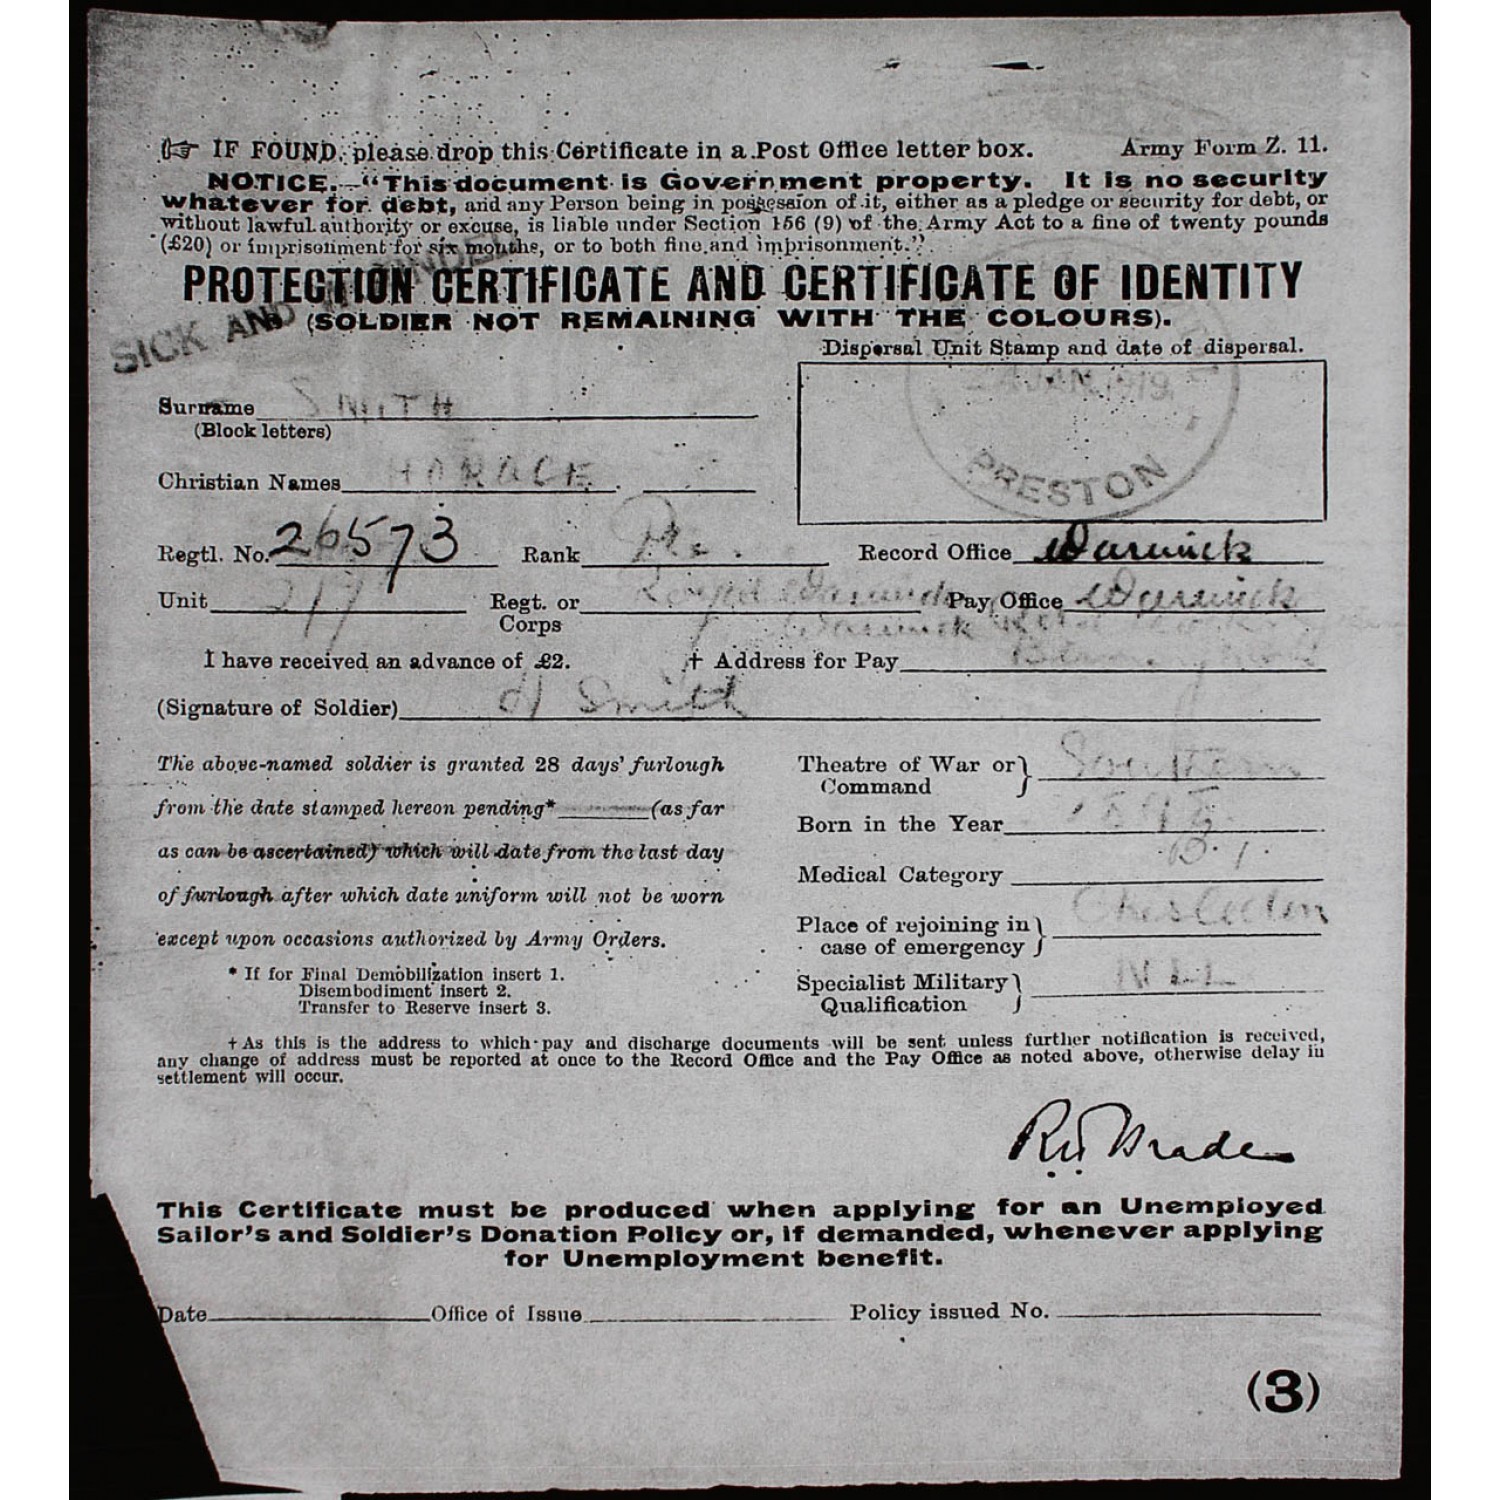 ☞ IF FOUND, please drop this Certificate in a Post Office letter box. Army Form Z. 11.
NOTICE.—"This document is Government property. It is no security
whatever for debt, and any Person being in possession of it, either as a pledge or security for debt, or
without lawful authority or excuse, is liable under Section 156 (9) of the Army Act to a fine of twenty pounds
(£20) or imprisonment for six months, or to both fine and imprisonment."
PROTECTION CERTIFICATE AND CERTIFICATE OF IDENTITY
SICK AND
(SOLDIER NOT REMAINING WITH THE COLOURS).
Dispersal Unit Stamp and date of dispersal.
JAN 1919
PRESTON
Surname SMITH
(Block letters)
Christian Names HORACE
Regtl. No. 26573 Rank Pte. Record Office Warwick
Unit 2/7 Regt. or Corps Royal Warwick Pay Office Warwick
Warwick Rd
I have received an advance of £2. † Address for Pay Birmingham
(Signature of Soldier) H Smith
The above-named soldier is granted 28 days' furlough
from the date stamped hereon pending* (as far
as can be ascertained) which will date from the last day
of furlough after which date uniform will not be worn
except upon occasions authorized by Army Orders.
* If for Final Demobilization insert 1.
Disembodiment insert 2.
Transfer to Reserve insert 3.
Theatre of War or Command Southern
Born in the Year
Medical Category B.1.
Place of rejoining in case of emergency Chisledon
Specialist Military Qualification NIL
† As this is the address to which pay and discharge documents will be sent unless further notification is received,
any change of address must be reported at once to the Record Office and the Pay Office as noted above, otherwise delay in
settlement will occur.
This Certificate must be produced when applying for an Unemployed
Sailor's and Soldier's Donation Policy or, if demanded, whenever applying
for Unemployment benefit.
Date Office of Issue Policy issued No.
(3)